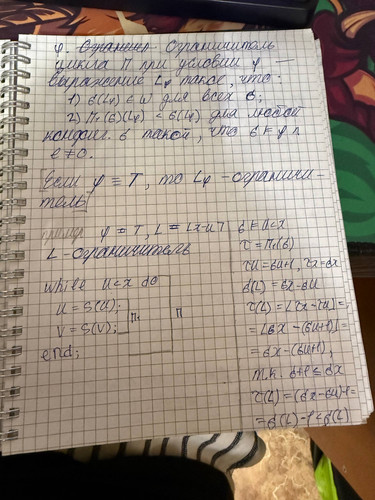 φ. Ограничитель
цикла П при условии φ —
выражение Lφ такое, что:
1) σ(Lφ) ∈ ω для всех σ;
2) П₁(σ)(Lφ) < σ(Lφ) для любой
σ такой, что σ ⊨ φ ∧
e ≠ 0.
Если φ ≡ T, то Lφ - ограничи-
тель
φ = T, L = ⌊x-u⌋
L - ограничитель
while u<x do
u = S(u);
v = S(v);
end;
П₁
П
σ ⊨ u<x
τ = П₁(σ)
τu = σu+1, τx = σx
σ(L) = σx - σu
τ(L) = ⌊τx - τu⌋ =
= ⌊σx - (σu+1)⌋ =
= σx - (σu+1),
т.к. σ+1 ≤ σx
τ(L) = (σx - σu) - 1 =
= σ(L) - 1 < σ(L)